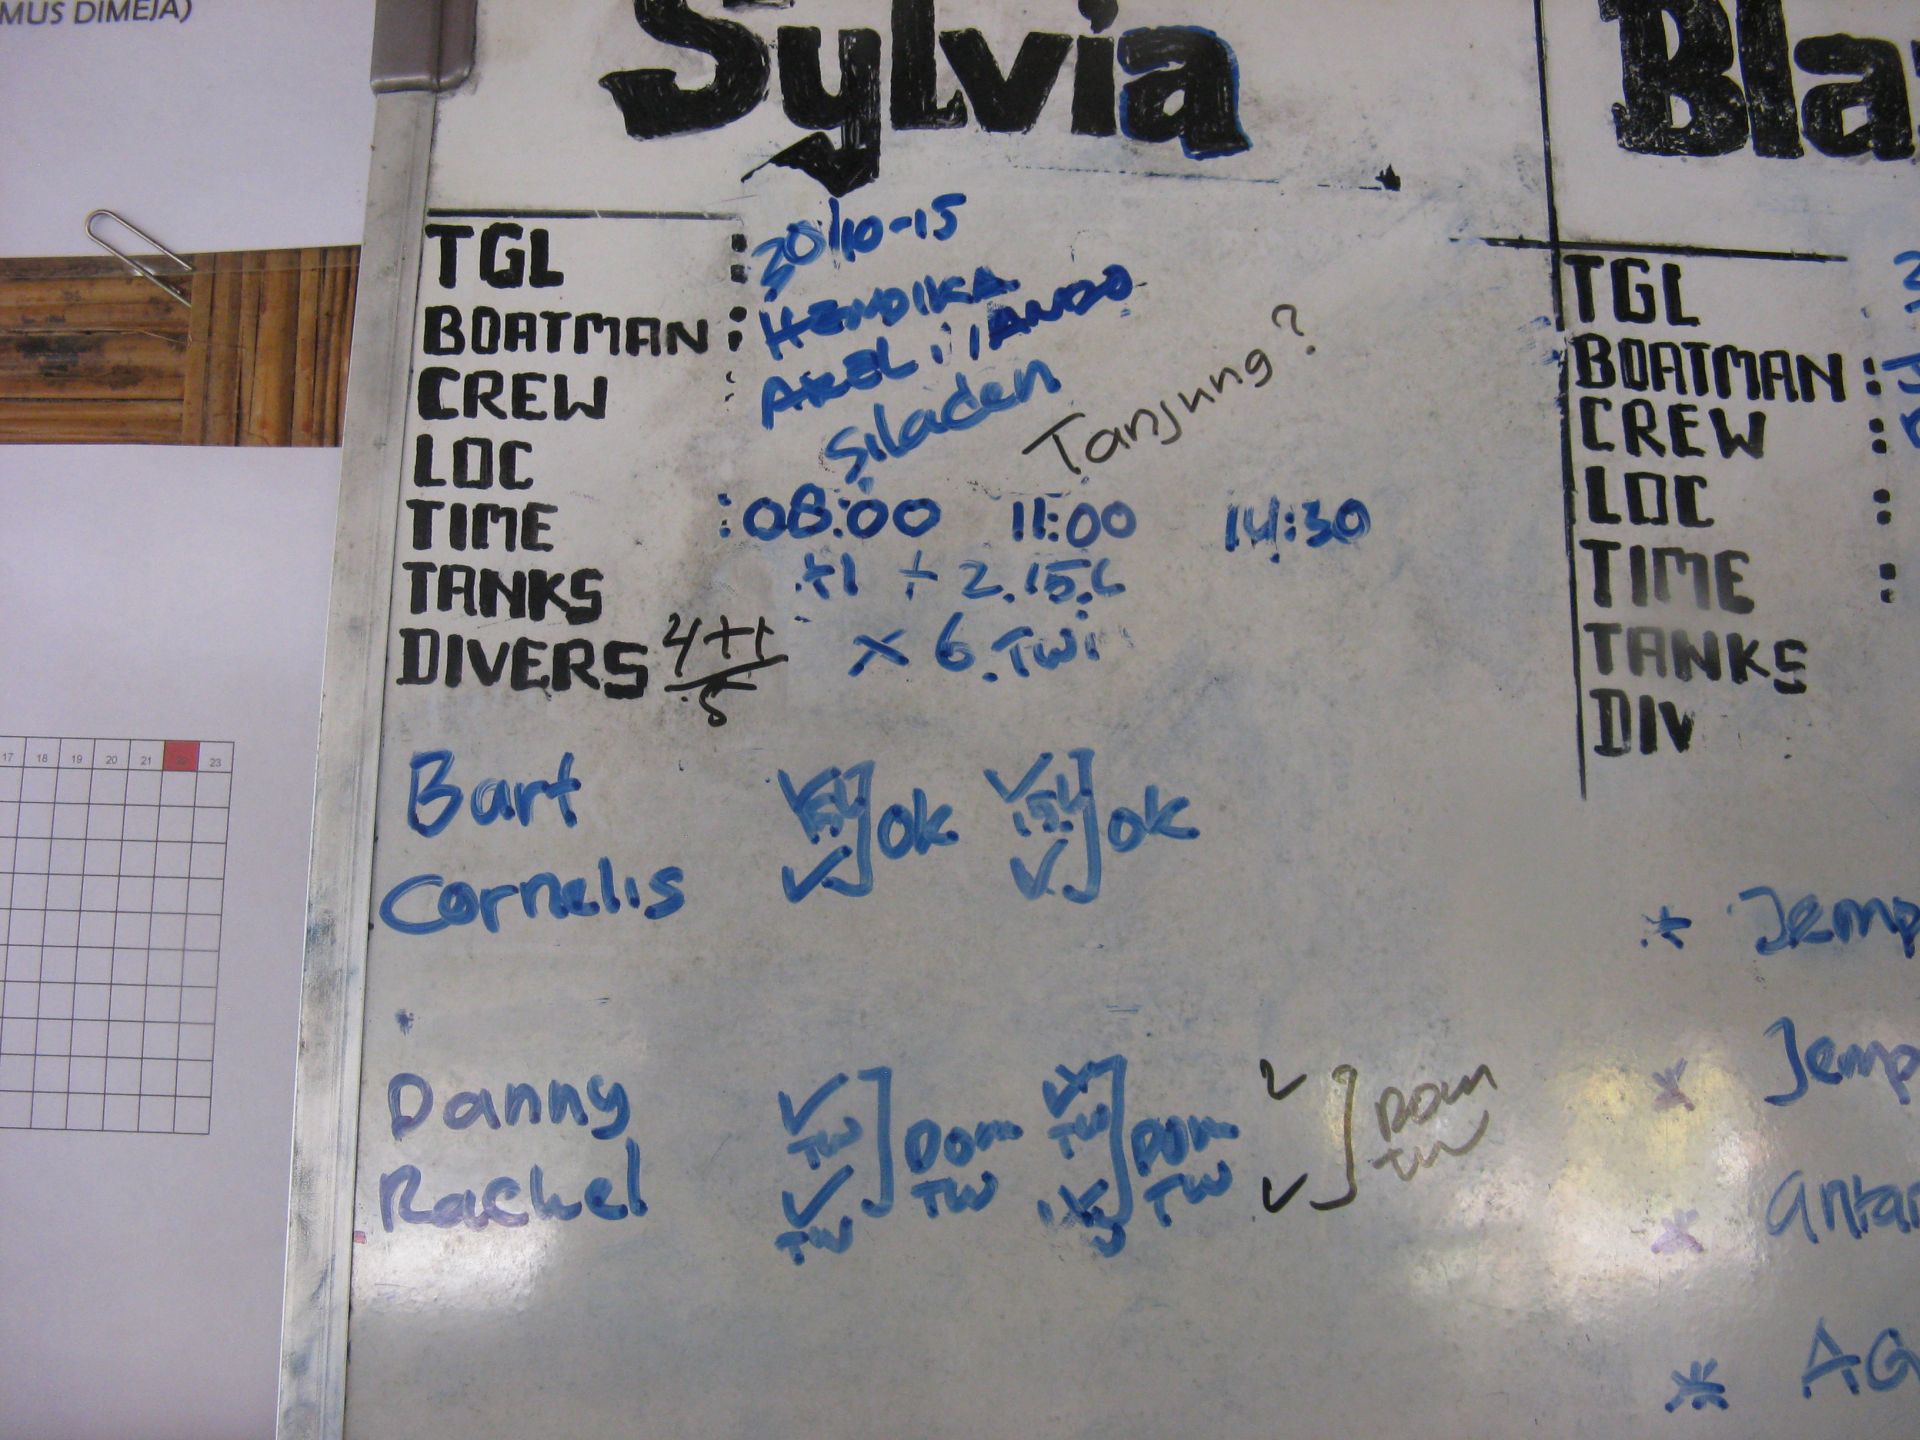 MUS DIMEJA)
Sylvia
TGL : 30/10-15
BOATMAN : HENDIKA
CREW : AKEL : IANDO
LOC Siladen Tanjung?
TIME : 08:00 11:00 14:30
TANKS +1 + 2.15.L
DIVERS 4+1 x 6.TWI
5
Bart 15L OK 15L OK
Cornelis
Danny TW Dom TW TW Dom TW Dom tw
Rachel TW
17 18 19 20 21 22 23
Bla
TGL
BOATMAN : J
CREW :
LOC :
TIME :
TANKS
DIV
Jemp
Jemp
Antar
AG